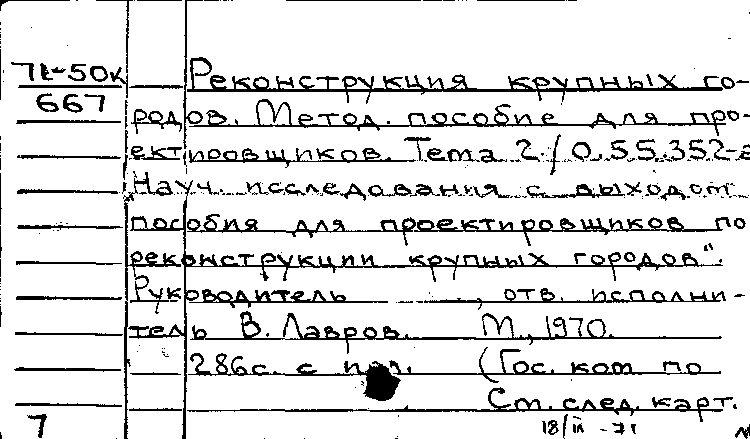 71-50к Реконструкция крупных го-
667 родов. Метод. пособие для про-
ектировщиков. Тема 2/0.55.352-
Науч. исследования с выходом
пособия для проектировщиков по
реконструкции крупных городов".
Руководитель , отв. исполни-
тель В. Лавров. М., 1970.
286с. с (Гос. ком по
См. след. карт.
7 18/III-71